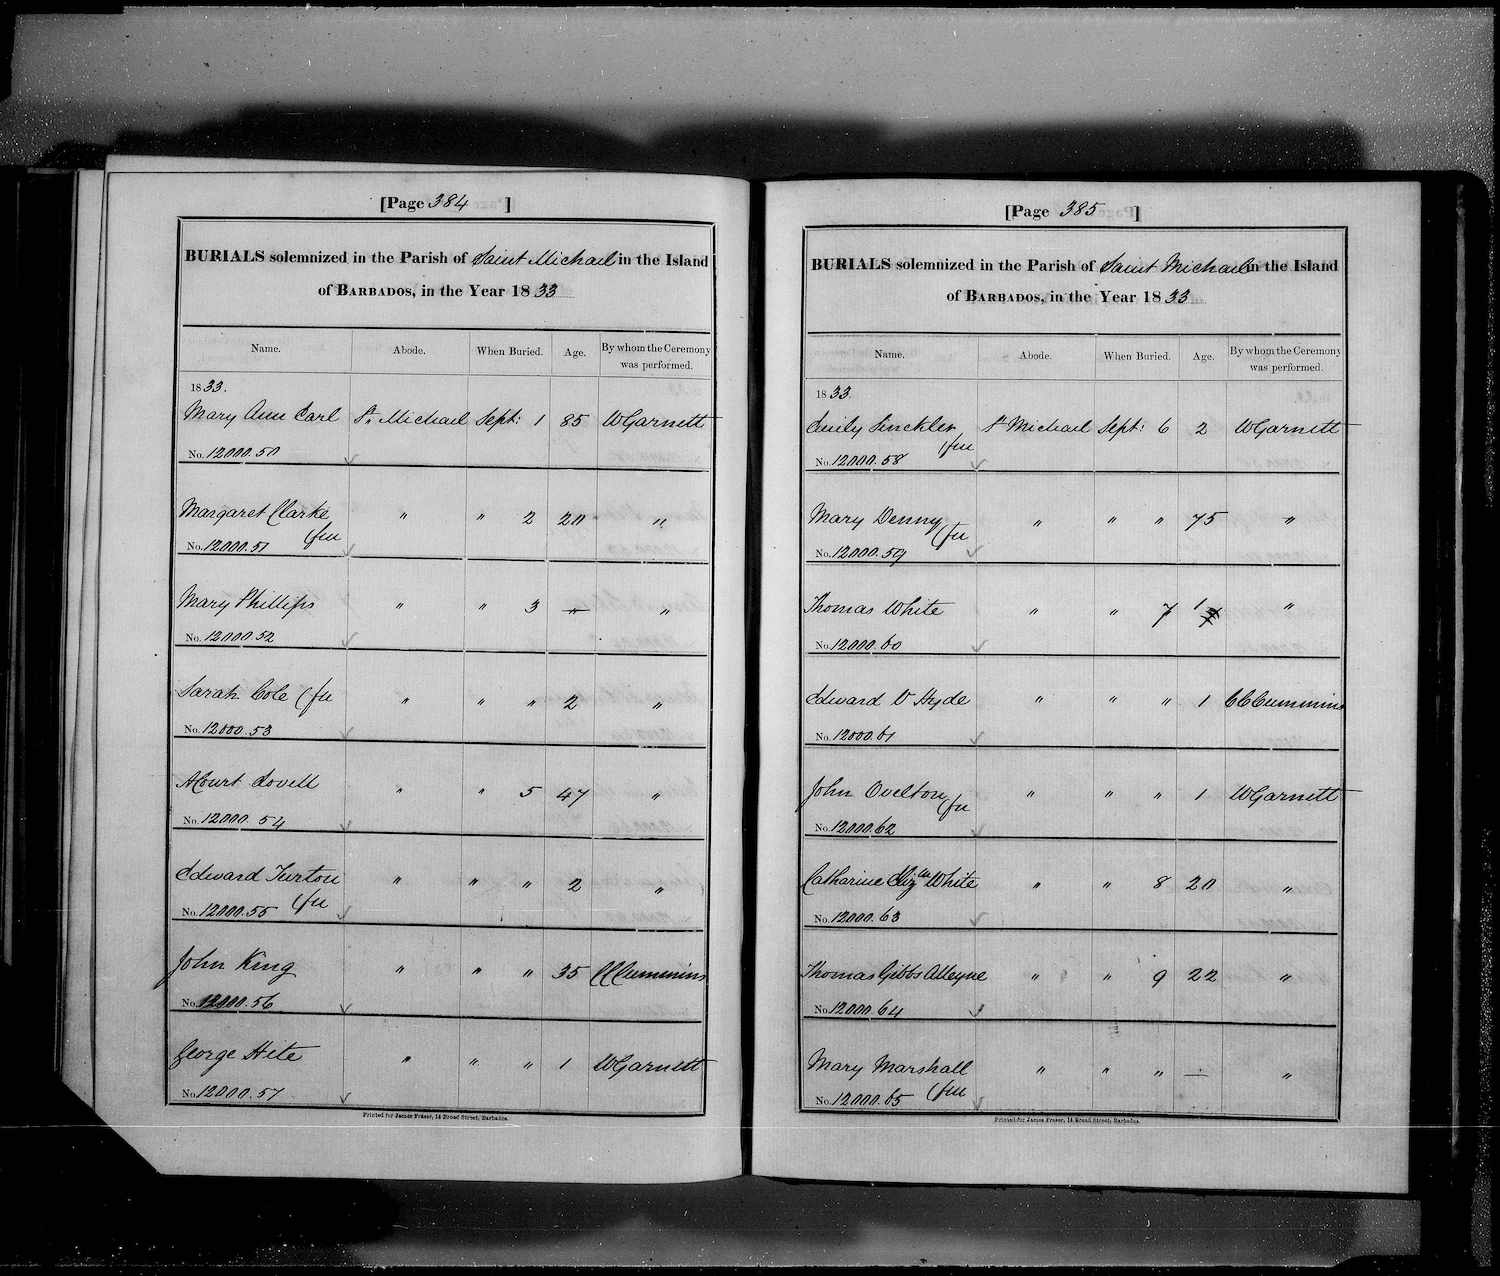 [Page 384 ]
BURIALS solemnized in the Parish of Saint Michael in the Island
of BARBADOS, in the Year 1833
Name. Abode. When Buried. Age. By whom the Ceremony was performed.
1833.
Mary Ann Carl St. Michael Sept: 1 85 WGarnett
No. 12000.50
Margaret Clarke " " 2 20 "
(fu
No. 12000.51
Mary Phillips " " 3 — "
No. 12000.52
Sarah Cole (fu " " " 2 "
No. 12000.53
ACourt Lovell " " 5 47 "
No. 12000.54
Edward Turton " " " 2 "
(fu
No. 12000.55
John King " " " 35 CCCummins
No. 12000.56
George Hite " " " 1 WGarnett
No. 12000.57
Printed for James Fraser, 14 Broad Street, Barbados.
[Page 385 ]
BURIALS solemnized in the Parish of Saint Michael in the Island
of BARBADOS, in the Year 1833
Name. Abode. When Buried. Age. By whom the Ceremony was performed.
1833
Emily Sinckler St Michael Sept: 6 2 WGarnett
(fu
No. 12000.58
Mary Denny (fu " " " 75 "
No. 12000.59
Thomas White " " 7 1 "
No. 12000.60
Edward D Hyde " " " 1 CCCummins
No. 12000.61
John Ovelton (fu " " " 1 WGarnett
No. 12000.62
Catharine Elizth White " " 8 20 "
No. 12000.63
Thomas Gibbs Alleyne " " 9 22 "
No. 12000.64
Mary Marshall " " " — "
(fu
No. 12000.65
Printed for James Fraser, 14 Broad Street, Barbados.